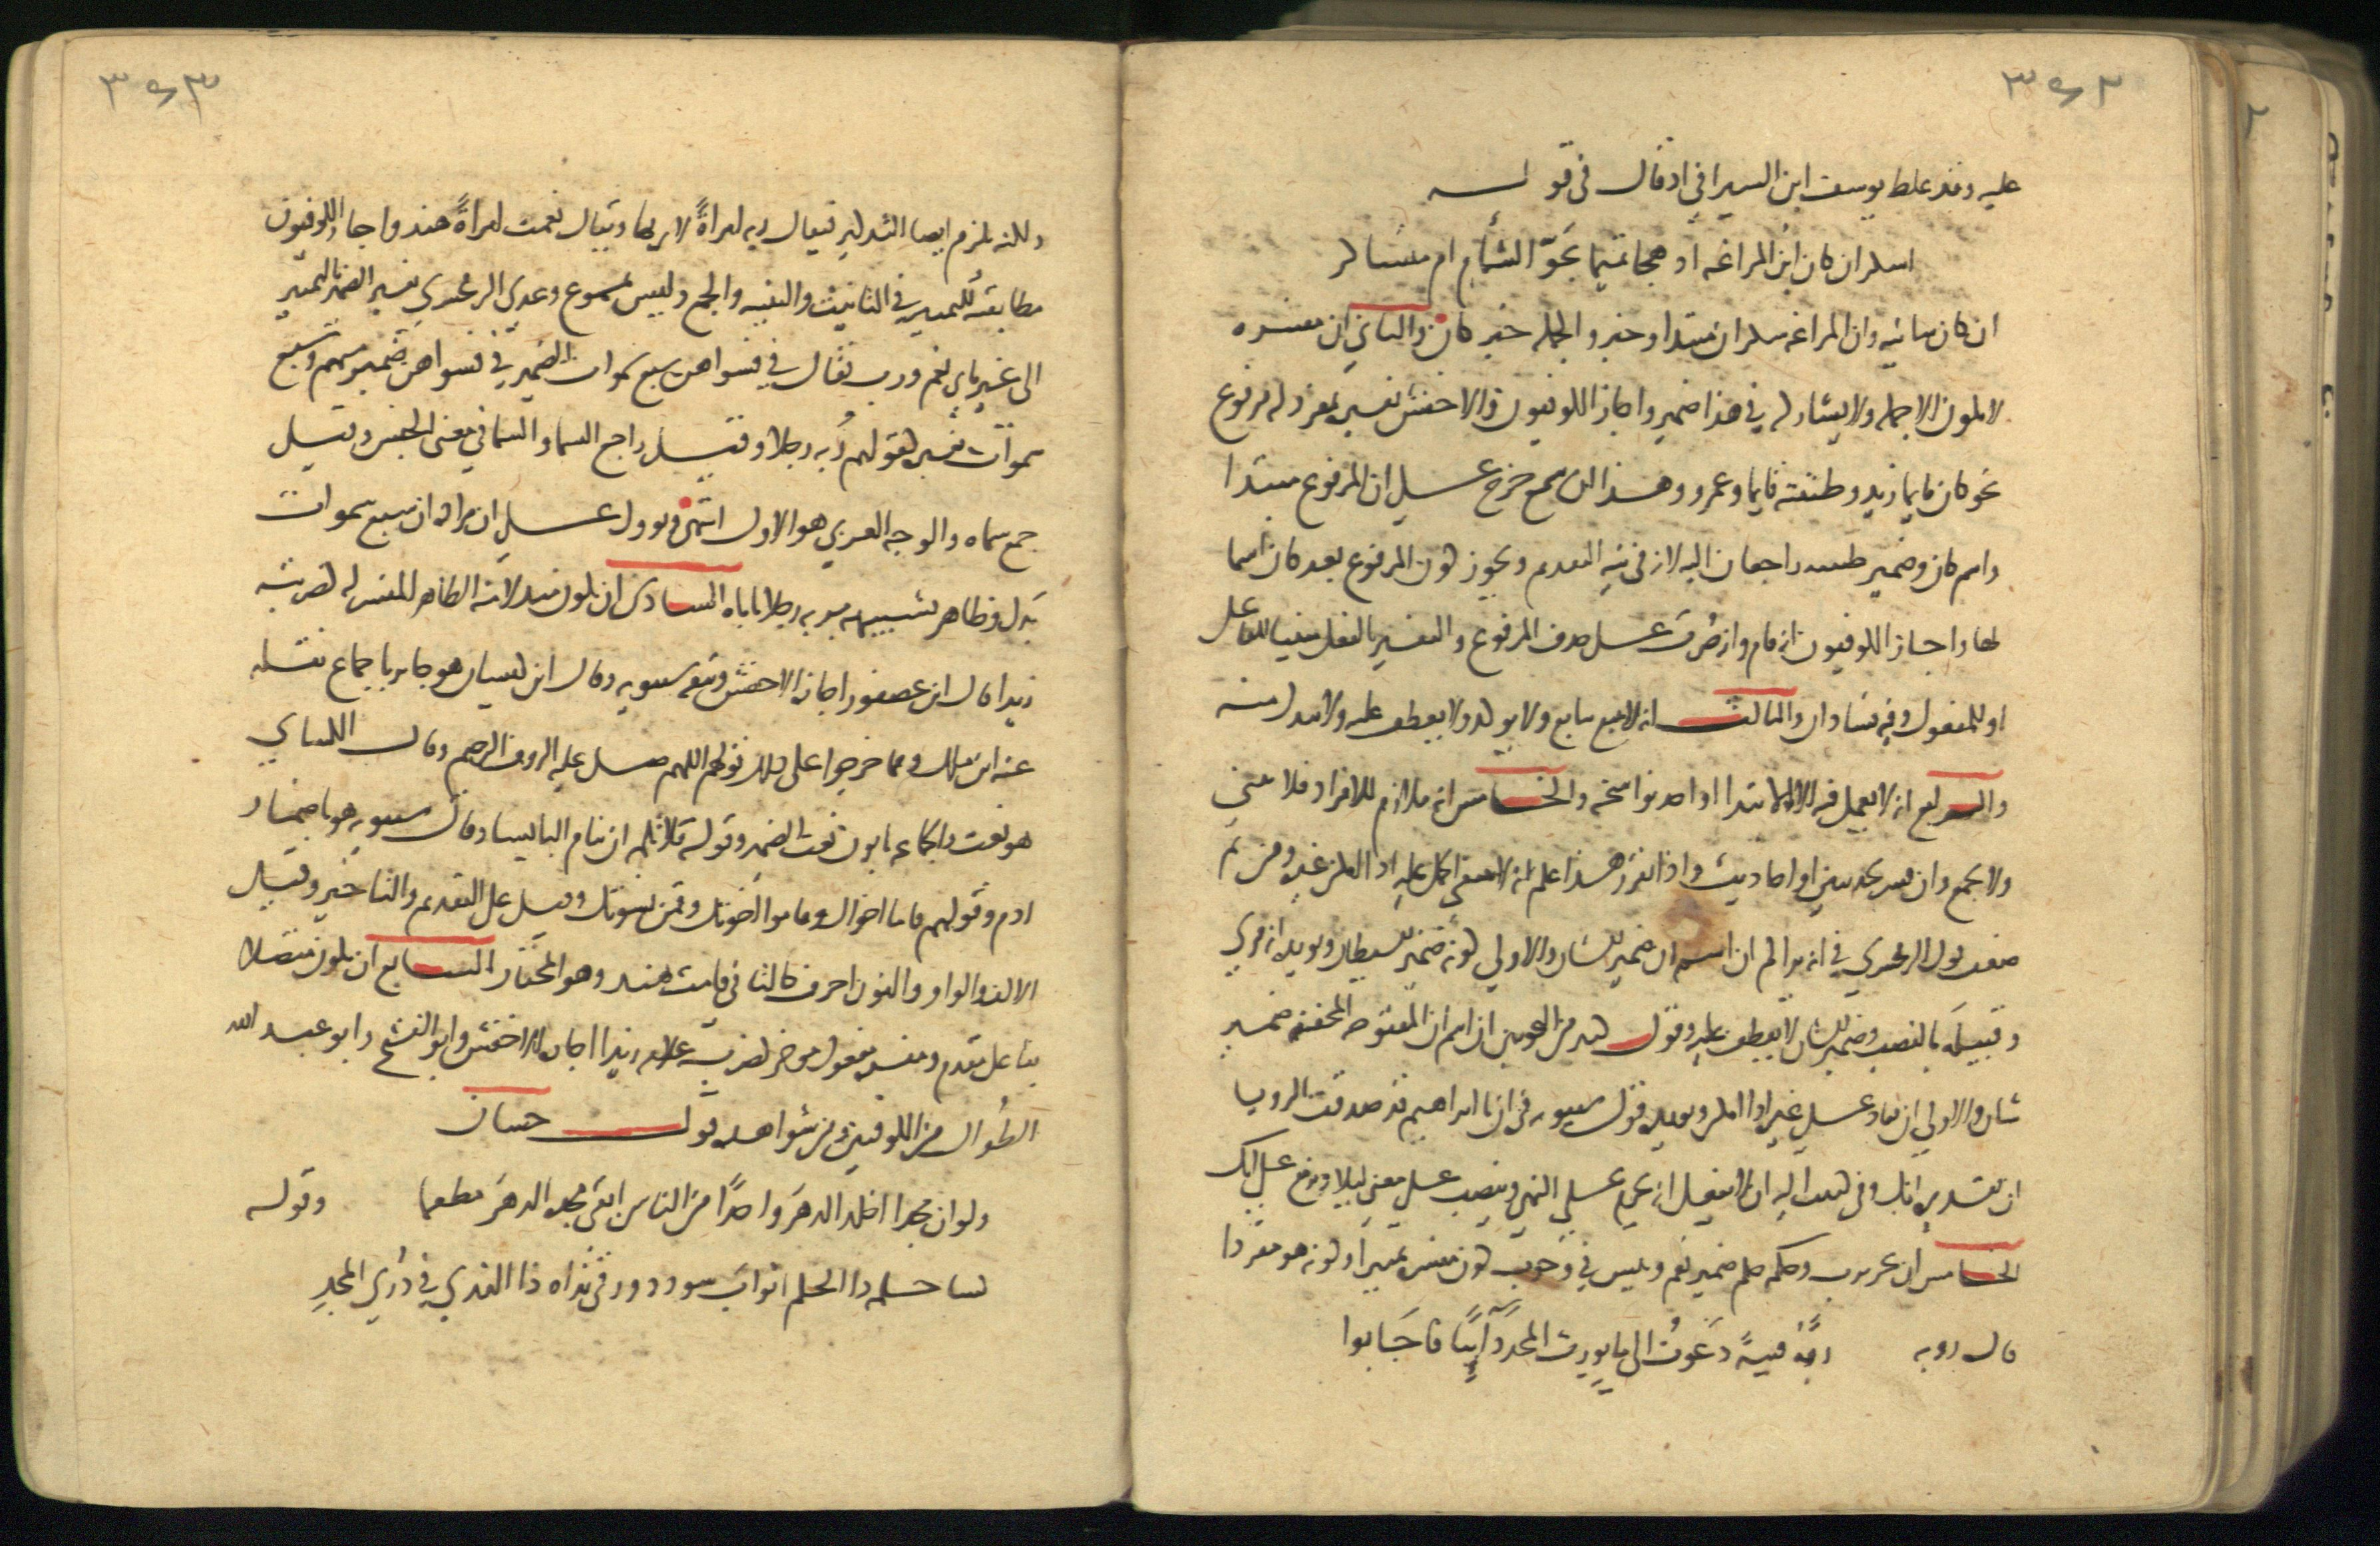 ٣٤٢
عليه وقد غلط يوسف ابن السيرافي اذ قال في قوله
اسكران كان ابن المراغه اذ هجا تميما بجوّ الشأم ام متساكر
ان كان شانيه وان المراغه سكران مبتدا وخبر والجمله خبر كان والثاني ان مفسره
لا يكون الا جمله ولا يشاركه في هذا ضمير واجاز الكوفيون والاخفش تفسيره بمفرد له مرفوع
نحو كان قايما زيد وظننته قايما عمرو وهذا ان سمع خرج على ان المرفوع مبتدا
واسم كان وضمير ظننته راجعان اليه لانه في نيه التقدم ويجوز كون المرفوع بعد كان اسما
لها واجاز الكوفيون انه قام وانه ضُرب على حذف المرفوع والتفسير بالفعل مبنيا للفاعل
او للمفعول وفيه فسادان والثالث انه لا يتبع بتابع ولا يوكد ولا يعطف عليه ولا يبدل منه
والرابع انه لا يعمل فيه الا الابتدا او احد نواسخه والخامس انه ملازم للافراد فلا يثنى
ولا يجمع وان فسر بحديثين او احاديث واذا تقرر هذا علم انه لا ينبغي الحمل عليه اذا امكن غيره ومن ثم
ضعف قول الزمخشري في انه يراكم ان اسم ان ضمير الشان والاولى كونه ضمير الشيطان ويويده انه قري
وقبيلَه بالنصب وضمير الشان لا يعطف عليه وقول كثير من النحويين ان اسم ان المفتوحه المخففه ضمير
شان والاولى ان يعاد على غيره اذا امكن ويويده قول سيبويه في ان يا ابراهيم قد صدقت الرويا
ان تقديره انك وفي كتبت اليه ان لا يفعل انه يجزم على النهي وينصب على معنى ليلا ويرفع على انك
الخامس ان يجر برب وحكمه حكم ضمير نعم وبيس في وجوب كون مفسره تمييزا وكونه هو مفردا
قال ربه ربّه فتيةً دَعَوتُ الى ما يورث المجد دآيبًا فاجَابوا
٣٤٣
ولكنه يلزم ايضا التذكير فيقال ربه امراةً لا ربها ويقال نعمت امراةً هند واجاز الكوفيون
مطابقته للتمييز في التانيث والتثنيه والجمع وليس بمسموع وعندي الزمخشري تفسير الضمير بالتمييز
الى غير بابي نعم ورب فقال في فسواهن سبع سموات الضمير في فسواهن ضمير مبهم وسبع
سموات تفسيره كقولهم رُبه رجلا وقيل راجع السما والسما في معنى الجنس وقيل
جمع سماه والوجه العربي هو الاول انتهى ويوول على ان مراده ان سبع سموات
بَدل وظاهر تشبيهه بربه رجلا ياباه السادس ان يكون مبدلا منه الظاهر المفسر له كضربته
زيدا قال ابن عصفور اجازه الاخفش ومنعه سيبويه وقال ابن كيسان هو جايز باجماع نقله
عنه ابن مالك ومما خرجوا على ذلك قولهم اللهم صل عليه الروف الرحيم وقال الكساي
هو نعت والجماعه يابون نعت الضمير وقوله فلا تلمه ان ينام البايسا وقال سيبويه هو باضمار
اذم وقولهم قاما اخواك وقاموا اخوتك وقمن نسوتك وقيل على التقديم والتاخير وقيل
الالف والواو والنون احرف كالتا في قامت هند وهو المختار السابع ان يكون متصلا
بفاعل مقدم ومفسره مفعول موخر كضرب غلامه زيدا اجازه الاخفش وابو الفتح وابو عبد الله
الطُوال من الكوفيين ومن شواهده قول حسان
ولو ان مجدا اخلد الدهرَ واحدًا من الناس ابقى مجده الدهرَ مطعما وقوله
كسا حلمه ذا الحلم اثوابَ سودد ورقى نداه ذا الندي في ذُرَي المجدِ